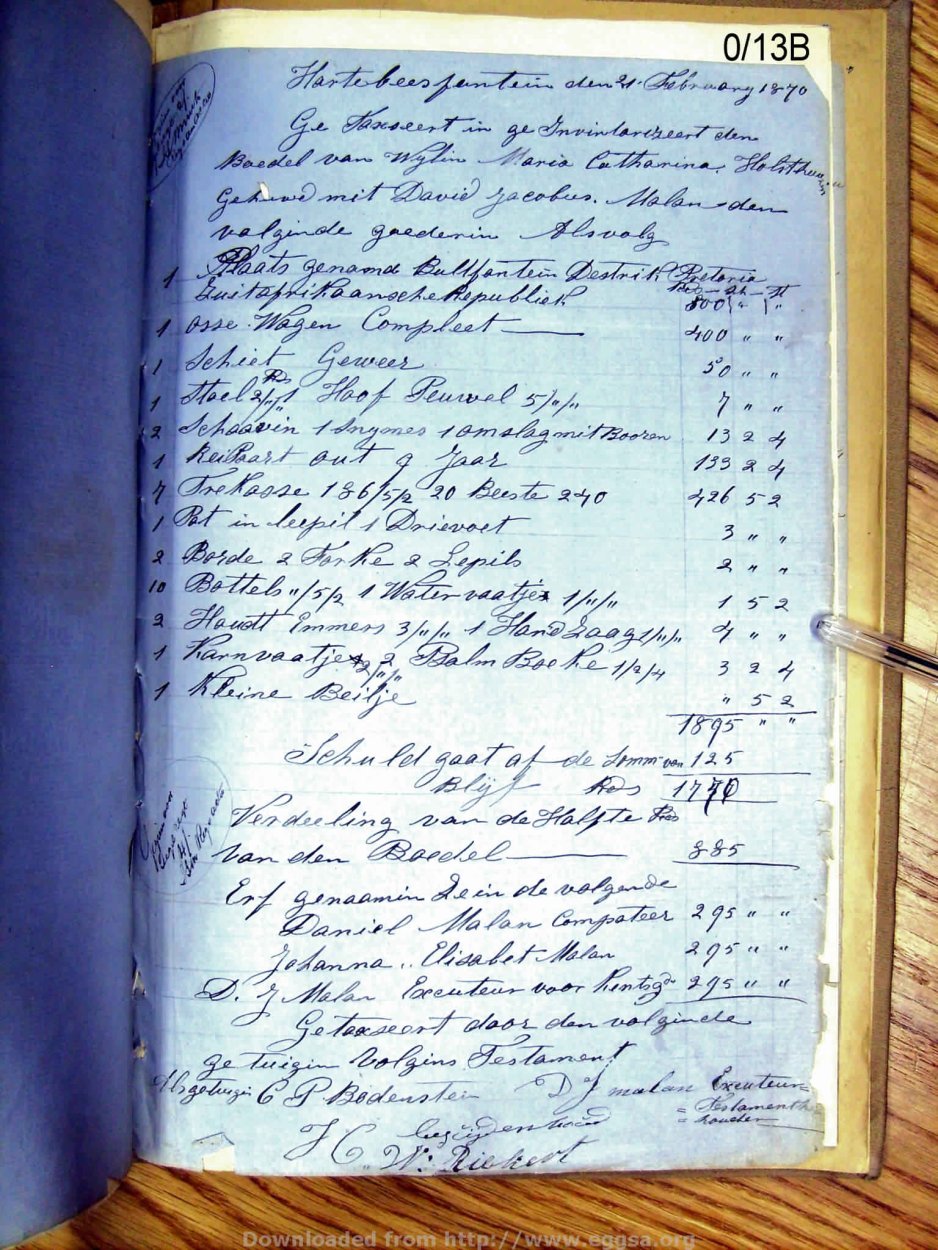 0/13B
Hartebeesfontein den 21 February 1870
Ge Taxseert in ge Invintarizeert den
Boedel van Wylin Maria Catharina Holsthuusin
Gehuwd mit David Jacobus. Malan den
valginde goederin Alsvolg
1 Plaats genamd Bultfontein Destrikt Pretoria
Zuitafrikaansche Republiek Rds – Sh – St 800 " "
1 Osse Wagen Compleet — 400 " "
1 Schiet Geweer 50 " "
1 Stoel Rds 2/"/" 1 Hoof Peuwel 5/"/" 7 " "
2 Schaavin 1 Snymes 1 omslag mit Booren 13 2 4
1 Rei Paart out 9 Jaar 133 2 4
7 Trekosse 186/5/2 20 Beeste 240 426 5 2
1 Pot in leepil 1 Drievoet 3 " "
2 Borde 2 Forke 2 Lepils 2 " "
10 Bottels "/5/2 1 Water vaatje 1/"/" 1 5 2
2 Houdt Emmers 3/"/" 1 Hand Zaag 1/"/" 4 " "
1 Karnvaatje 2/"/" 2 Psalm Boeke 1/2/4 3 2 4
1 Kleine Beitje " 5 2
1895 " "
Schuld gaat af de Somm van 125
Blijf Rds 1770
Verdeeling van de Halfte Rds
van den Boedel — 885
Erf genaamin Zein de valgende
Daniel Malan Compateer 295 " "
Johanna .. Elisabet Malan 295 " "
D. J Malan Executeur voor 295 " "
Getaxseert door den valginde
getuigin Volgins Testament
Als getuigin C P Bodenstein D J malan Executeur
= Testamenth
= houder
J C W: Riekert
Downloaded from http://www.eggsa.org